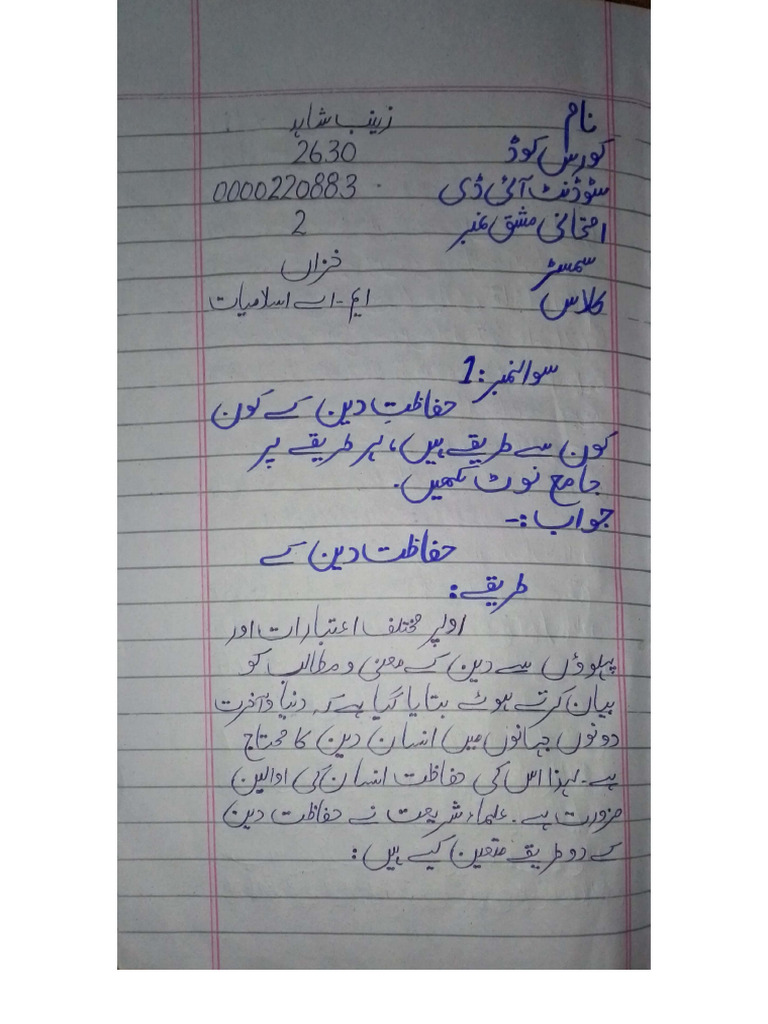 نام زینب شاہد
کورس کوڈ 2630
سٹوڈنٹ آئی ڈی 0000220883
امتحانی مشق نمبر 2
سمسٹر خزاں
کلاس ایم-اے اسلامیات
سوالنمبر:1
حفاظتِ دین کے کون
کون سے طریقے ہیں، ہر طریقے پر
جامع نوٹ لکھیں۔
جواب:-
حفاظت دین کے
طریقے:
اوپر مختلف اعتبارات اور
پہلوؤں سے دین کے معنی و مطالب کو
بیان کرتے ہوئے بتایا گیا ہے کہ دنیا و آخرت
دونوں جہانوں میں انسان دین کا محتاج
ہے۔ لہذا اس کی حفاظت انسان کی اوالین
ضرورت ہے۔ علماء شریعت نے حفاظت دین
کے دو طریقے متعین کیے ہیں: